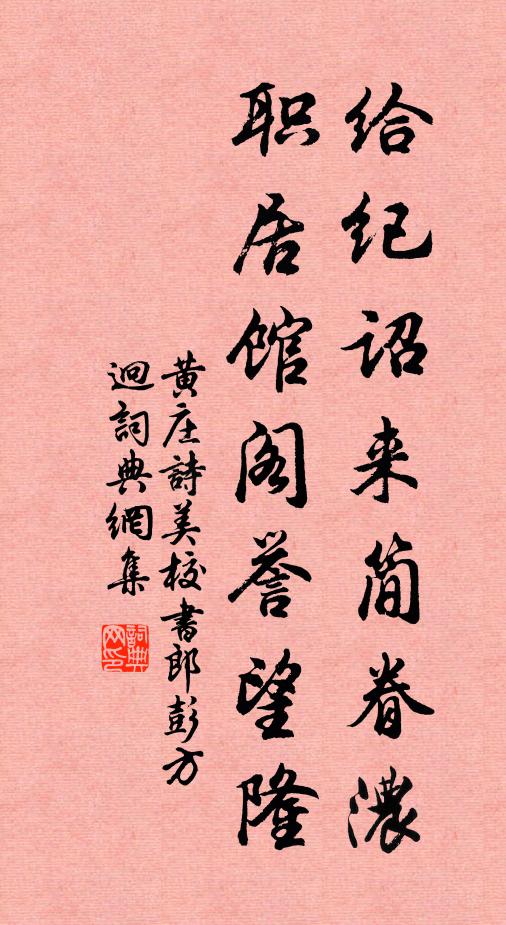 给纪诏来简眷浓
职居馆阁誉望隆
黄庄詩美校書郎彭方
迥詞典網集
詞典网印